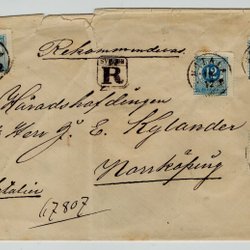 Rekommenderas.
R
12
Häradshöfdingen
Herr J. E. Kylander
Norrköping
17807